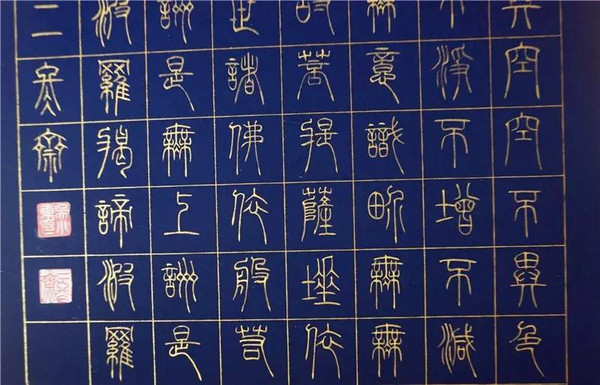 異空空不異色
不淨不增不減
無意識界無無
故菩提薩埵依
世諸佛依般若
詶是無上詶是
波羅揭諦波羅
二齋